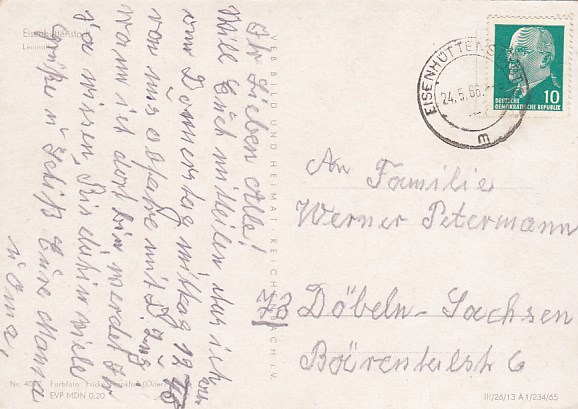 Eisenhüttenstadt
Ihr Lieben Alle!
Will Euch mitteilen das ich
am Donnerstag mittag 12
von uns abfahre mit D Zug
wann ich dort bin werdet Ihr
ja wissen, Bis dahin viele
Grüße u Küße Eure Mama
u Oma,
VEB BILD UND HEIMAT · REICHENBACH I. V.
EISENHÜTTENSTADT
24.5.66.
m
10
DEUTSCHE
DEMOKRATISCHE REPUBLIK
An Familie
Werner Petermann
73 Döbeln-Sachsen
Bärentalstr 6
EVP MDN 0,20
III/26/13 A 1/234/65